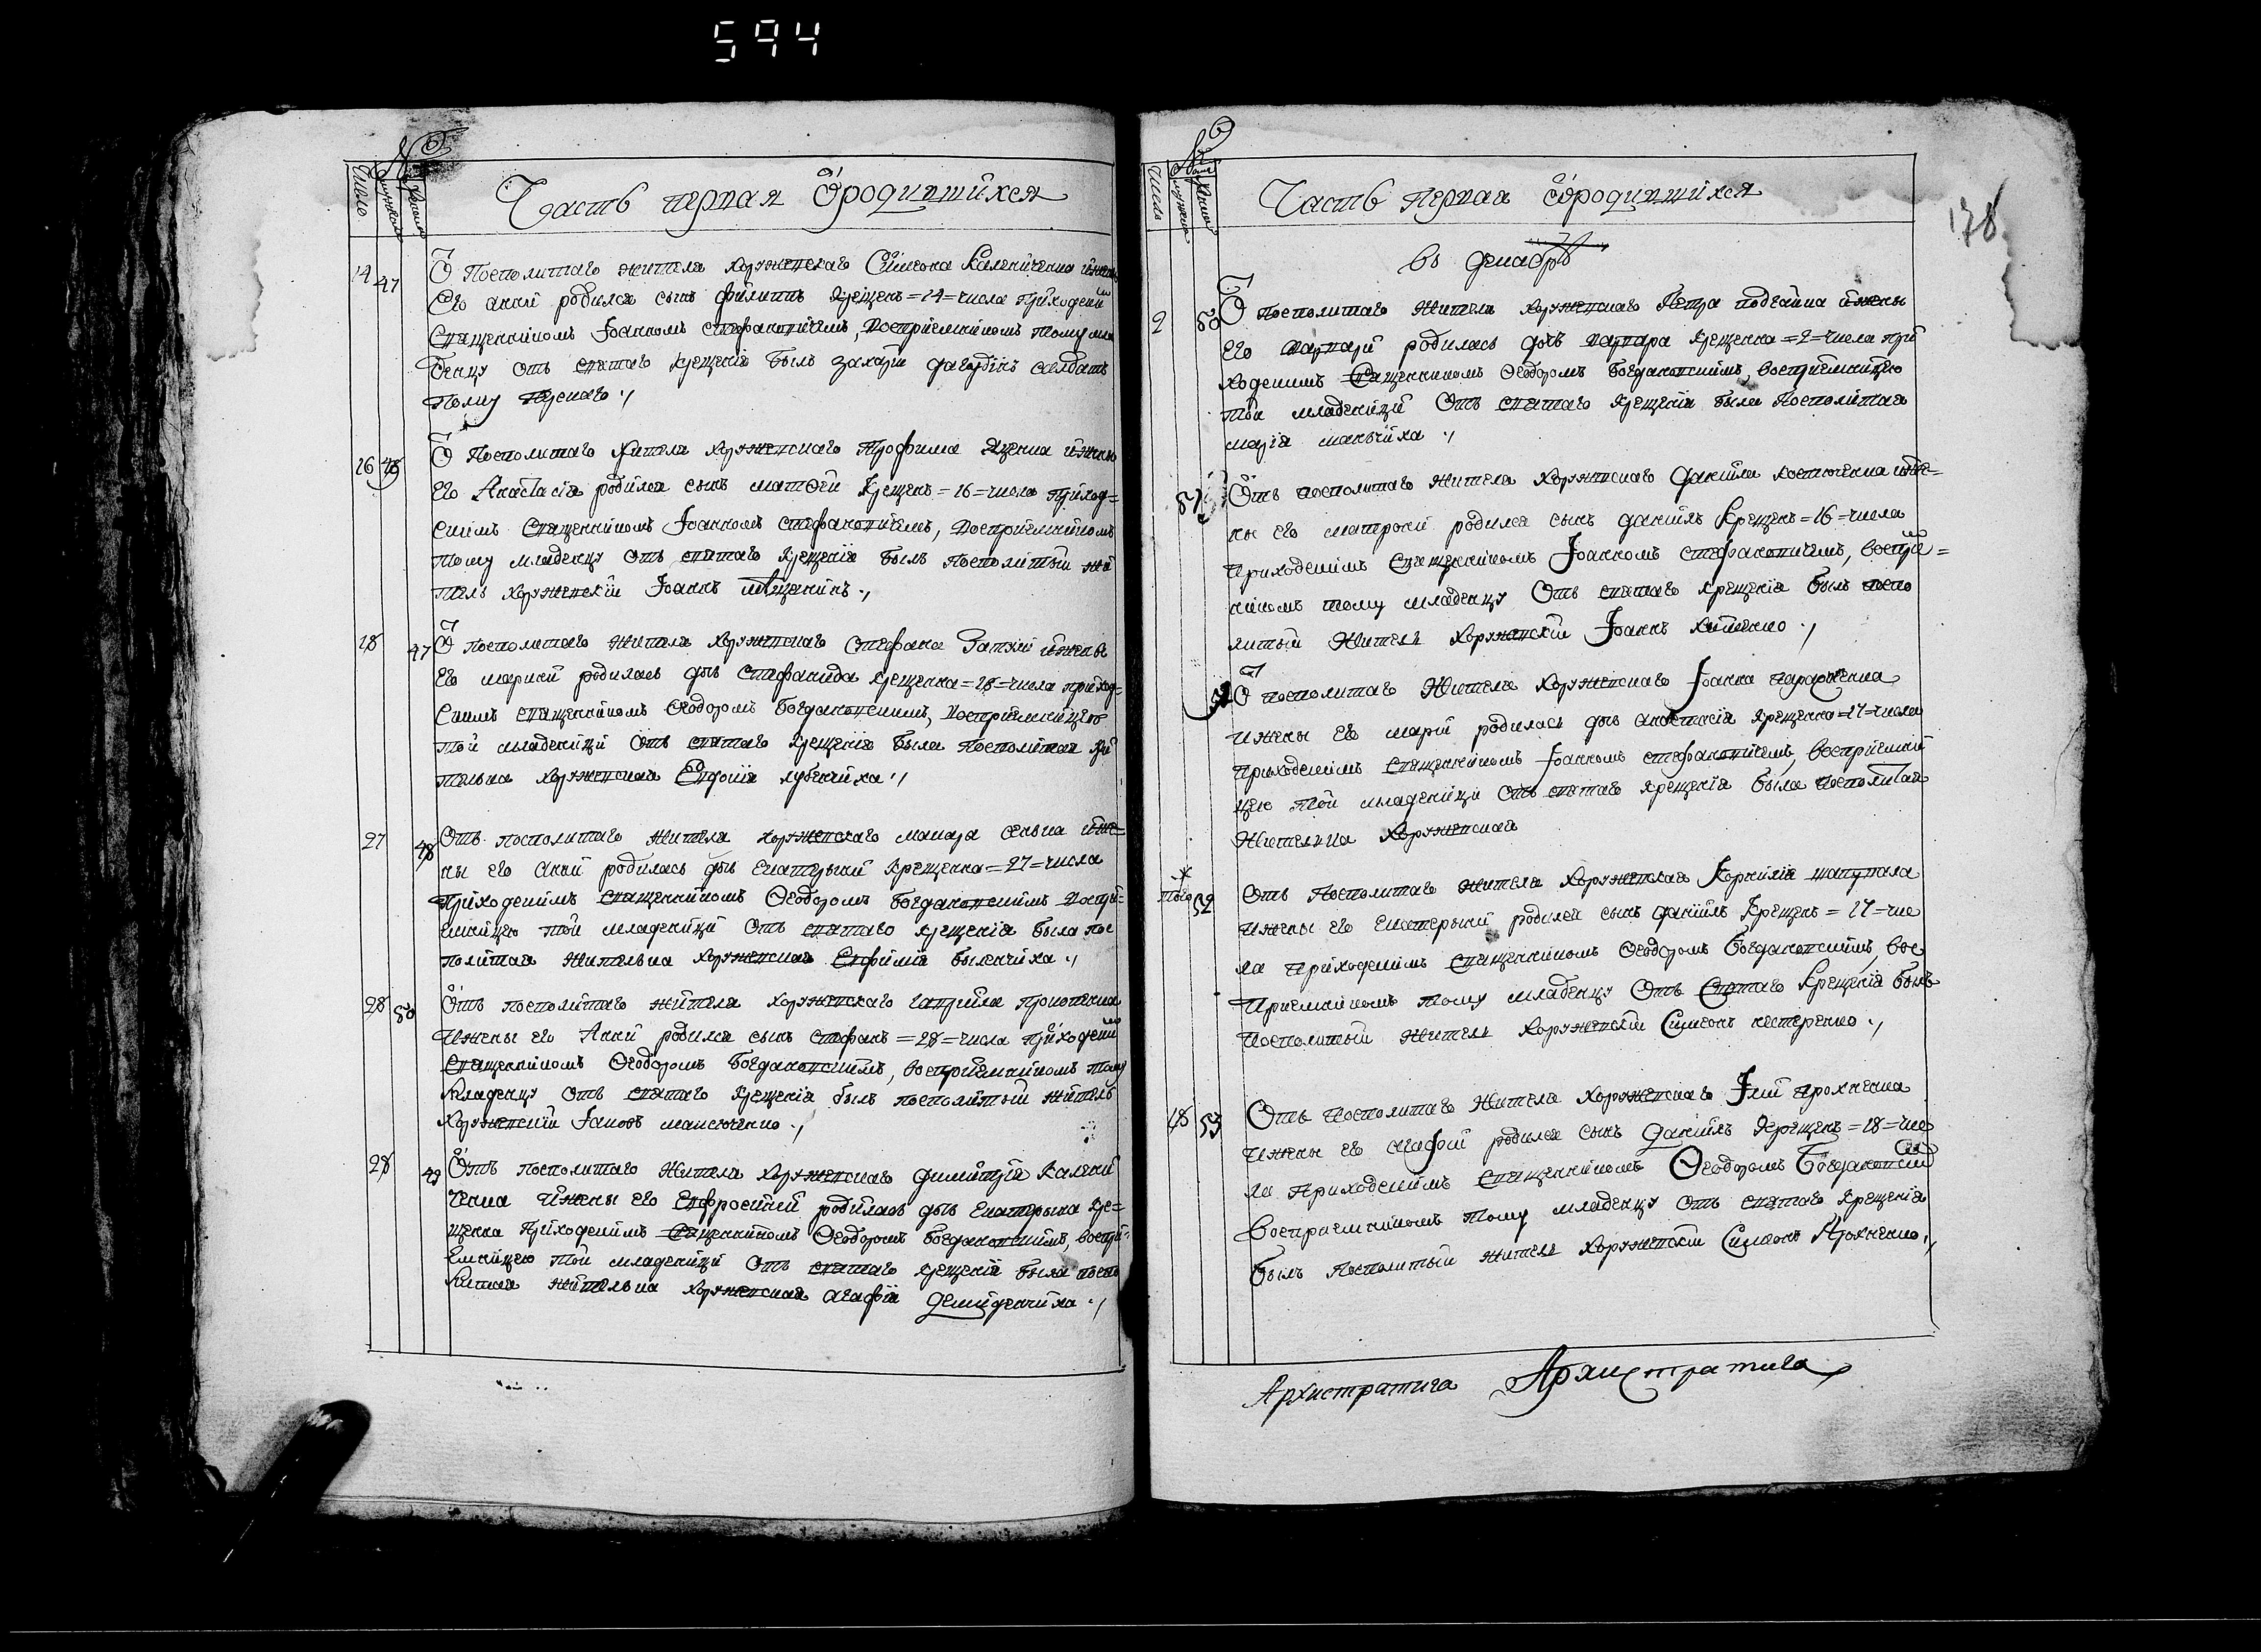 594
№
Число мужеска женска
Часть первая ѡ родившихся
14 47 Ѿ посполитаго жителя хоружевскаго Симеона Калениченка и жены
Его анны родился сынъ филиппъ крещенъ =14= числа приходским
священникомъ Іоанномъ стефановичемъ, восприемникомъ тому мла
денцу отъ святаго крещенія былъ захарій солдатъ
16 48 Ѿ посполитаго жителя хоружевскаго трофима яценка и жены
Его Анастасія родился сынъ матѳей крещенъ =16= числа приход=
скимъ священникомъ Іоанномъ стефановичемъ, восприемникомъ
тому младенцу отъ святаго крещенія былъ посполитый жи
тель хоружевскій Іоаннъ
18 47 Ѿ посполитаго жителя хоружевскаго стефана и жены
Его марины родилась дщь стефанида крещенна =18= числа приход=
скимъ священникомъ Ѳеодоромъ Богдановскимъ, восприемницею
той младеницы отъ святаго крещенія была посполитая жи
телька хоружевская Евдокія
27 48 Отъ посполитаго жителя хоружевскаго макара сенька и же=
ны его анны родилась дщь Екатерины крещенна =27= числа
приходскимъ священникомъ Ѳеодоромъ Богдановскимъ воспри=
емницею той младеницы отъ святаго крещенія была пос
политая жителька хоружевская Евфимія быленчиха ·,
28 50 Отъ посполитаго жителя хоружевскаго гаврила прокопенка
и жены его Анны родился сынъ стефанъ =28= числа приходским
священникомъ Ѳеодоромъ Богдановскимъ, восприемникомъ тому
младенцу отъ святаго крещенія былъ посполитый житель
хоружевскій Іаковъ максюченко ·,
28 49 Отъ посполитаго жителя хоружевскаго димитрія Калени
ченка и жены его Евфросиніи родилась дщь Екатерына кре=
щенна приходскимъ священникомъ Ѳеодоромъ Богдановскимъ, воспри=
емницею той младеницы отъ святаго крещенія была поспо
литая жителька хоружевская агафія демиденчиха ·,
№
Число мужеска женска
178
Часть первая ѡ родившихся
въ декабрѣ
2 50 Ѿ посполитаго жителя хоружевскаго Петра и жены
Его варвары родилась дщь варвара крещенна =2= числа при
ходскимъ священникомъ Ѳеодоромъ Богдановскимъ, восприемницею
той младеницы отъ святаго крещенія была посполитая
марія ·,
51 Отъ посполитаго жителя хоружевскаго даніила костюченка и же=
ны его матроны родился сынъ даніилъ крещенъ =16= числа
приходскимъ священникомъ Іоанномъ стефановичемъ, воспри=
никомъ тому младенцу отъ святаго крещенія былъ поспо
литый житель хоружевскій Іоаннъ ·,
Ѿ посполитаго жителя хоружевскаго Іоанна
и жены его маріи родилась дщь анастасія крещенна =17= числа
приходскимъ священникомъ Іоанномъ стефановичемъ, восприемни
цею той младеницы отъ святаго крещенія была посполитая
жителька хоружевская
того 52 Отъ посполитаго жителя хоружевскаго Корнилія шаптала
и жены его Екатерыны родился сынъ даніилъ крещенъ =17= чис
ла приходскимъ священникомъ Ѳеодоромъ Богдановскимъ, вос
приемникомъ тому младенцу отъ святаго крещенія былъ
посполитый житель хоружевскій Симеонъ нестеренко ·,
18 53 Отъ посполитаго жителя хоружевскаго Іліи ярохненка
и жены его агафіи родился сынъ Даніилъ крещенъ =18= чис
ла приходскимъ священникомъ Ѳеодоромъ Богдановским
восприемникомъ тому младенцу отъ святаго крещенія
былъ посполитый житель хоружевскій Симеонъ Ярохненко ·,
Архистратига Архистратига